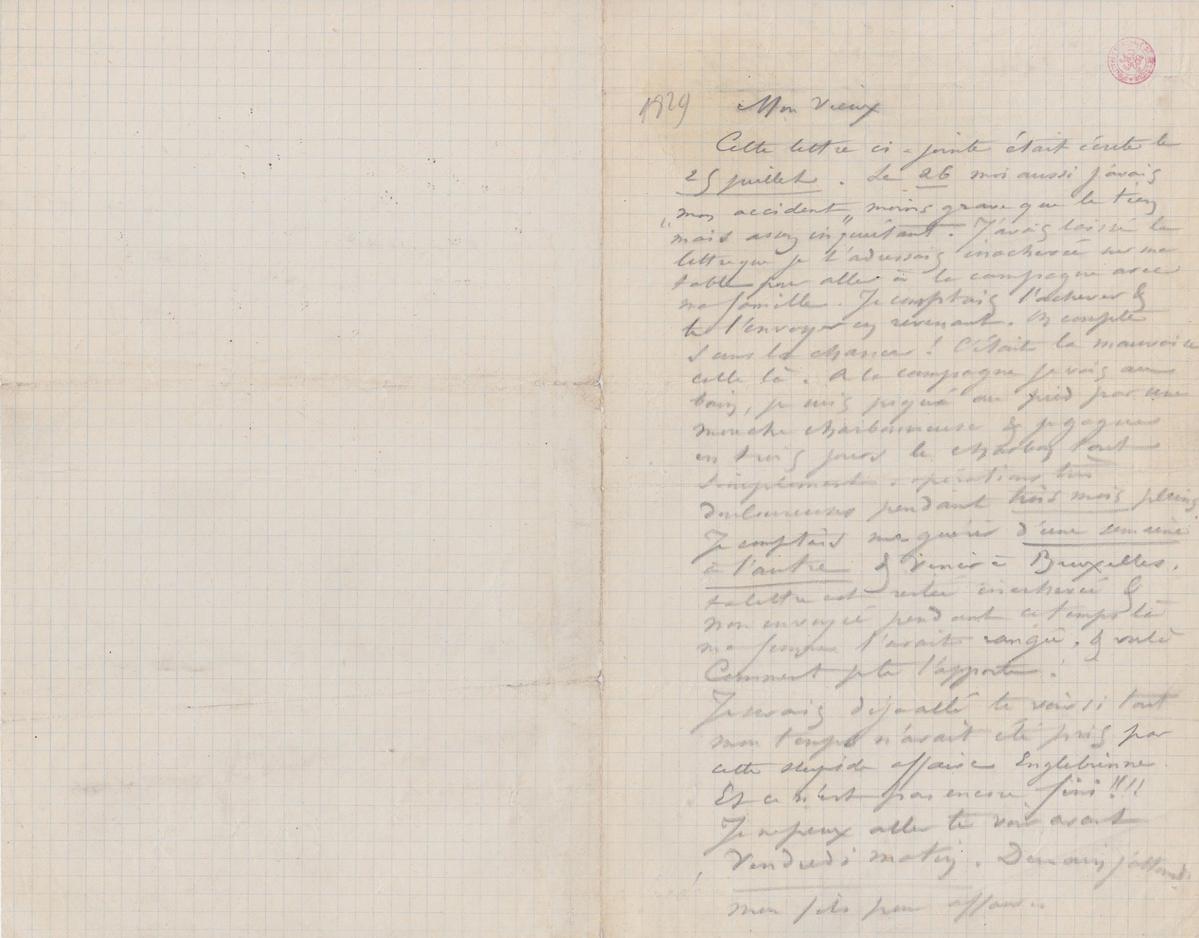 1929 Mon Vieux
Cette lettre ci-jointe était écrite le
25 juillet. Le 26 moi aussi j'avais
"mon accident" moins grave que le tien
mais assez inquiétant. J'avais laissé la
lettre que je t'adressais inachevée sur ma
table pour aller à la campagne avec
ma famille. Je comptais l'achever &
te l'envoyer en revenant. On compte
sans la chance! C'était la mauvaise
celle là. A la campagne je vais au
bain, je suis piqué au pied par une
mouche charbonneuse & je gagne
en trois jours le charbon tout
simplement. opérations très
douloureuses pendant trois mois pleins
Je comptais me guérir d'une semaine
à l'autre & venir à Bruxelles.
ta lettre est restée inachevée &
non envoyée pendant ce temps là
ma femme l'avait rangée. & voilà
Comment je te l'apporte.
Je serais déjà allé te voir si tout
mon temps n'avait été pris par
cette stupide affaire Englebienne.
Et ce n'est pas encore fini!!!!
Je ne peux aller te voir avant
Vendredi matin. Demain j'attends
mon fils pour affaires